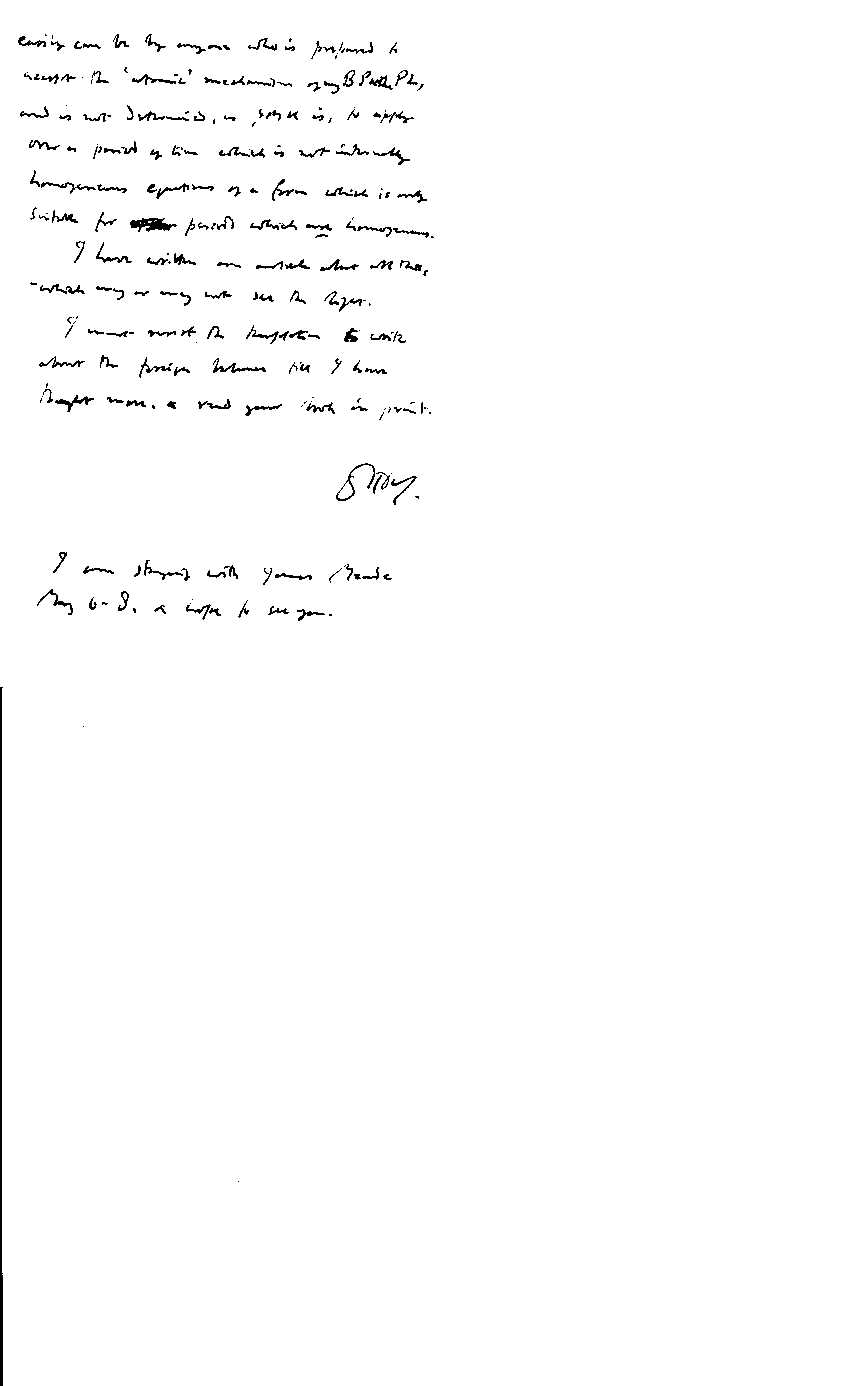 easily can be by anyone who is prepared to
accept the 'atomic' mechanism of my B
and is not determined, as is, to apply
over a period of time which is not internally
homogeneous equations of a form which is only
suitable for periods which are homogeneous.
I have written an article about all this,
- which may or may not see the light.
I must resist the temptation to write
about the foreign balance till I have
thought more, & read your book in print.
I am staying with James Meade
May 6-8, & hope to see you.